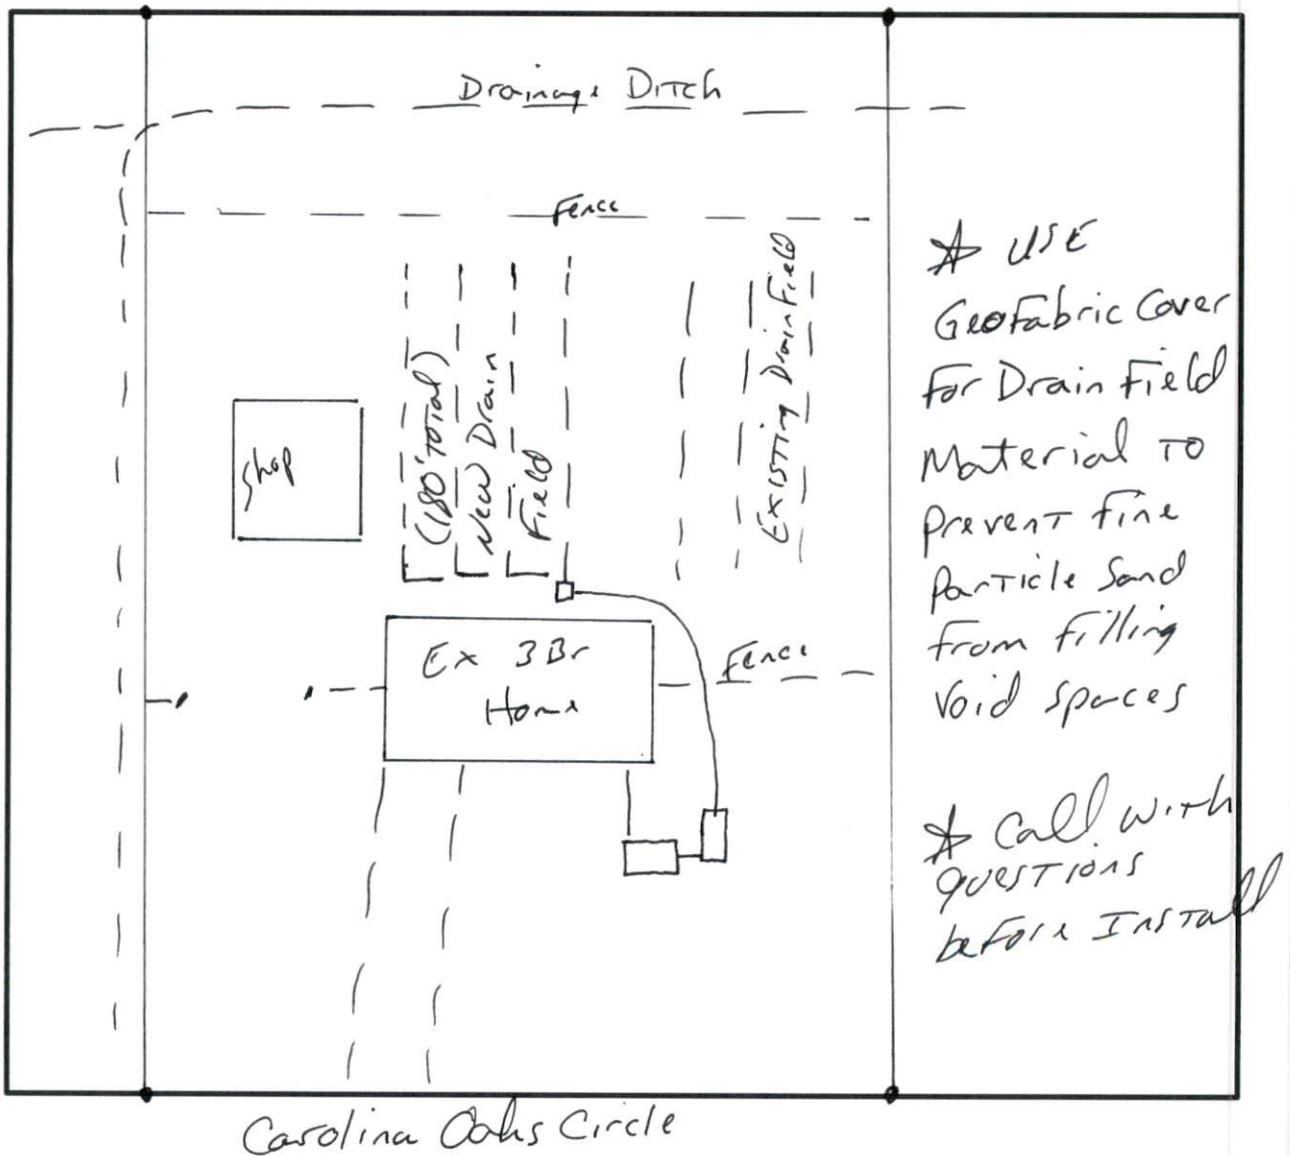 Drainage Ditch
Fence
(180' Total)
New Drain
Field
Existing Drainfield
Shop
Ex 3Br
Home
Fence
* Use
GeoFabric Cover
for Drain Field
Material To
prevent fine
particle sand
from filling
void spaces
* Call with
questions
before Install
Carolina Oaks Circle